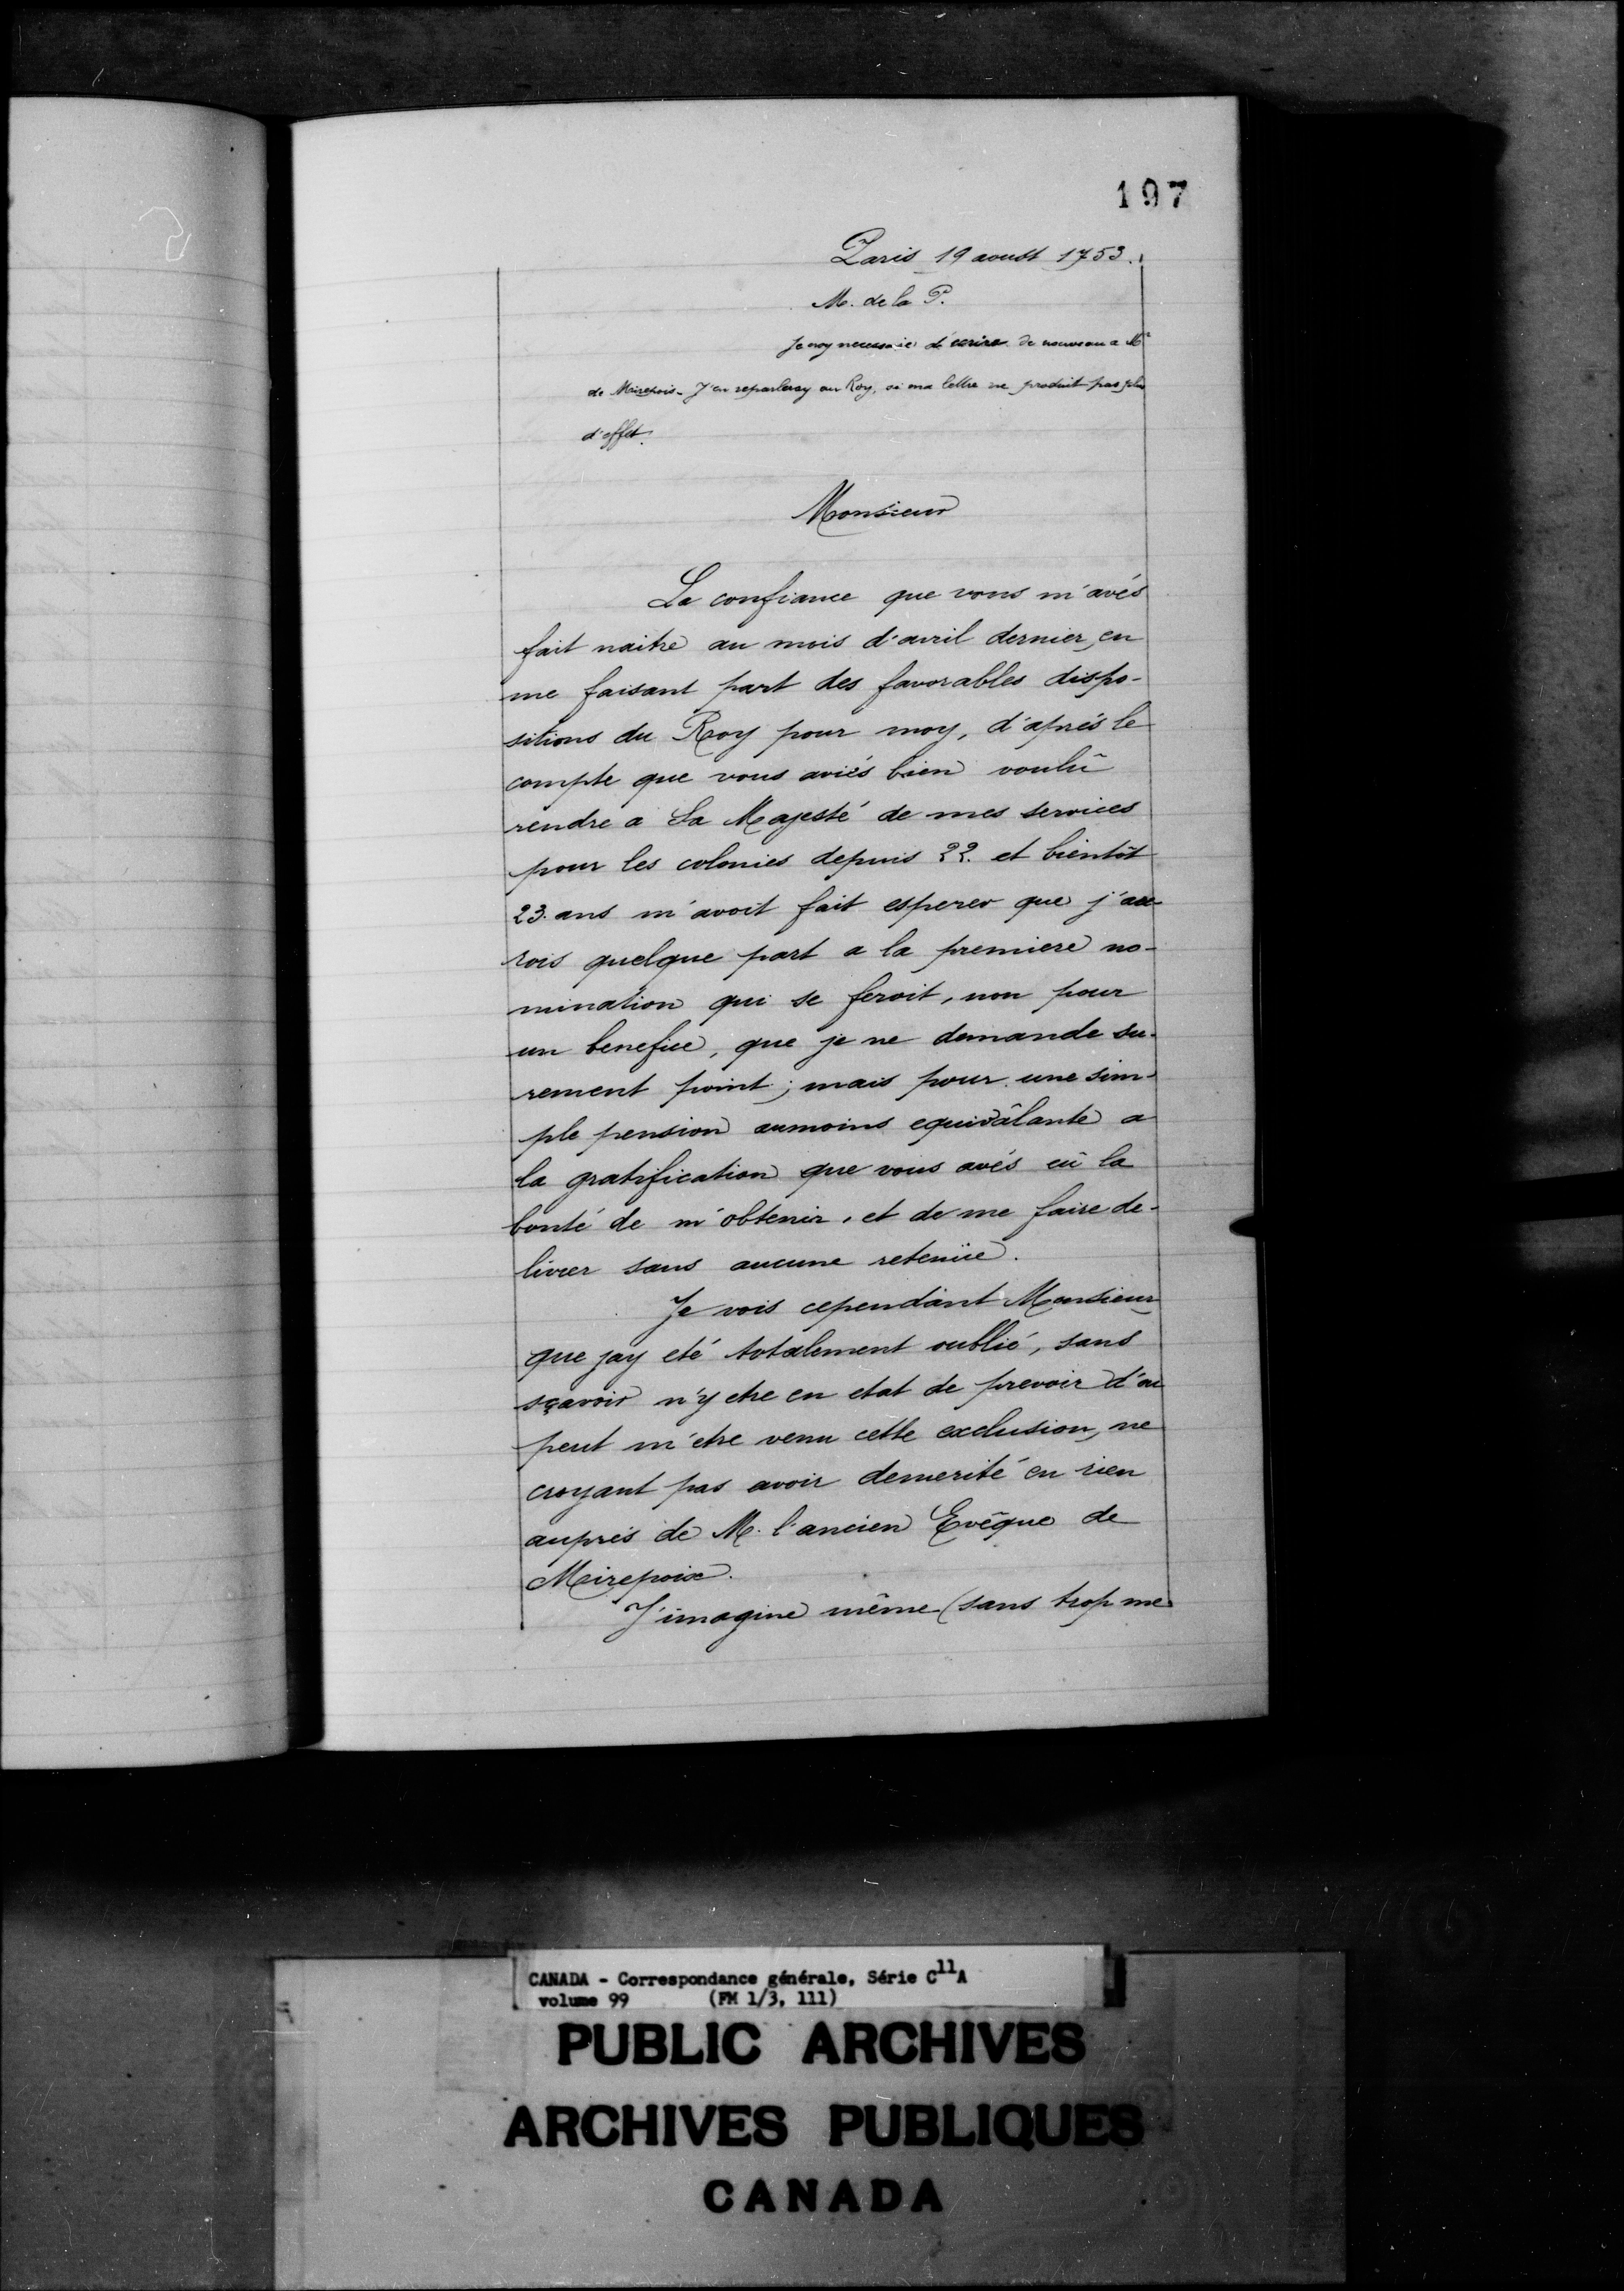 197
Paris 19 aoust 1753.
M. de la P.
Je croy necessaire d'écrire de nouveau a Mr
de Mirepois. J'en reparleray au Roy, si ma lettre ne produit pas plus
d'effet.
Monsieur
La confiance que vous m'avés
fait naitre au mois d'avril dernier, en
me faisant part des favorables dispo-
sitions du Roy pour moy, d'aprés le
compte que vous aviés bien voulû
rendre a Sa Majesté de mes services
pour les colonies depuis 22. et bientôt
23. ans m'avoit fait esperer que j'au-
rois quelque part a la premiere no-
mination qui se feroit, non pour
un benefice, que je ne demande su-
rement point; mais pour une sim-
ple pension aumoins equivâlante a
la gratification que vous avés eû la
bonté de m'obtenir, et de me faire de-
livrer sans aucune retenüe.
Je vois cependant Monsieur
que jay eté totalement oublié, sans
sçavoir n'y etre en etat de prevoir d'ou
peut m'etre venu cette exclusion, ne
croyant pas avoir demerité en rien
auprés de M. l'ancien Evêque de
Mirepoix.
J'imagine même (sans trop me
CANADA - Correspondance générale, Série C11A
volume 99 (FM 1/3, 111)
PUBLIC ARCHIVES
ARCHIVES PUBLIQUES
CANADA